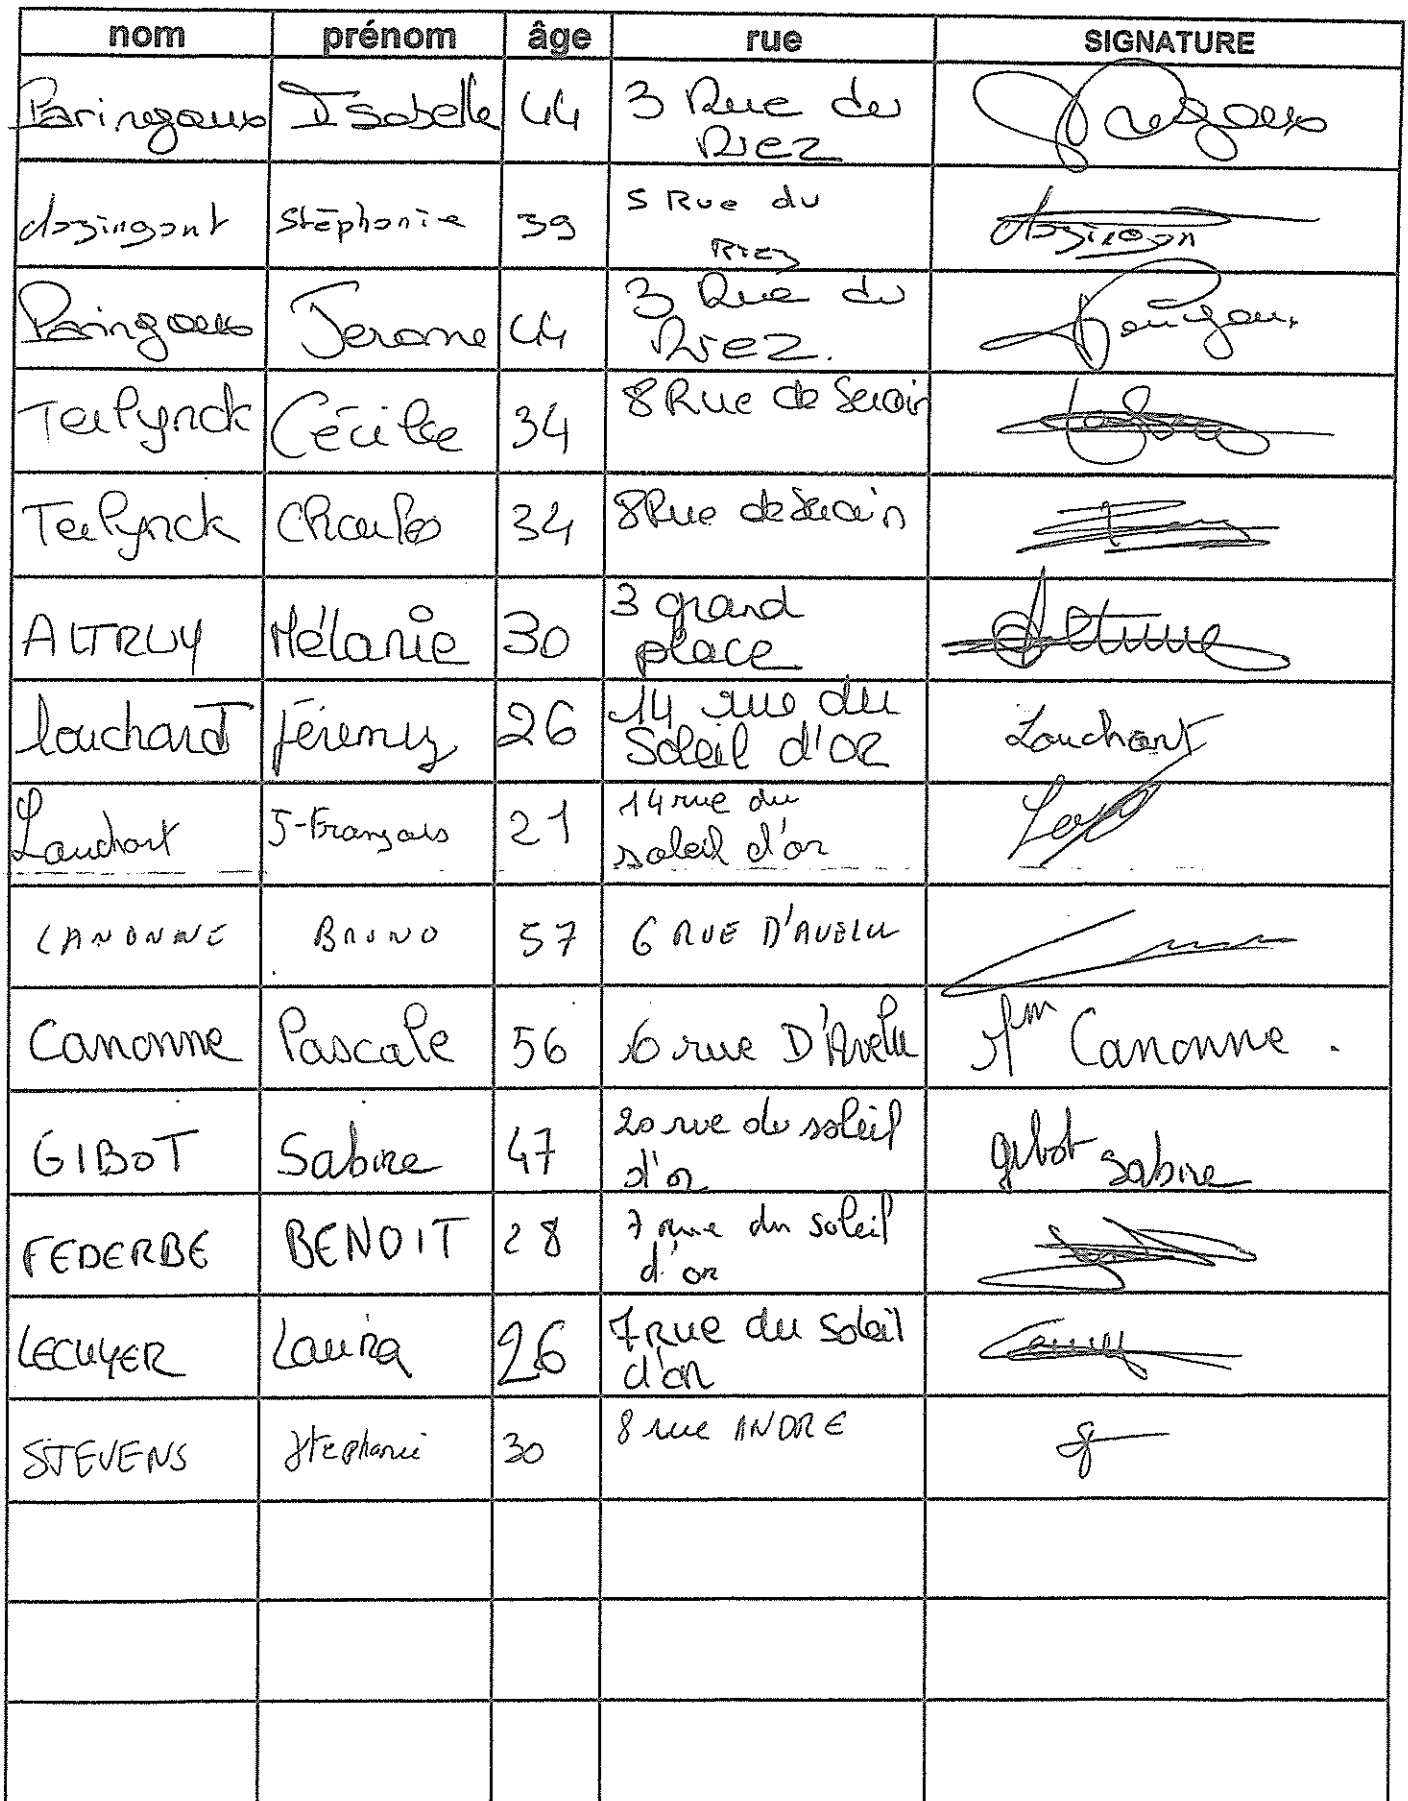 nom prénom âge rue SIGNATURE
Paringaux Isabelle 44 3 Rue du
Riez
dazingant Stéphanie 39 5 Rue du
Riez
Paringaux Jerome 44 3 Rue du
Riez.
Terlynck Cécile 34 8 Rue de Serain
Terlynck Charles 34 8 Rue de Serain
ALTRUY Mélanie 30 3 grand
place
louchart Jérémy 26 14 rue du
Soleil d'OR Louchart
Louchart J-François 21 14 rue du
soleil d'or
CANONNE BRUNO 57 6 RUE D'AVELU
Canonne Pascale 56 6 rue D'Avelu Mm Canonne.
GIBOT Sabine 47 20 rue du soleil
d'or gibot sabine
FEDERBE BENOIT 28 7 rue du soleil
d'or
LECUYER Laura 26 7 rue du Soleil
d'or
STEVENS Stephanie 30 8 rue ANDRE